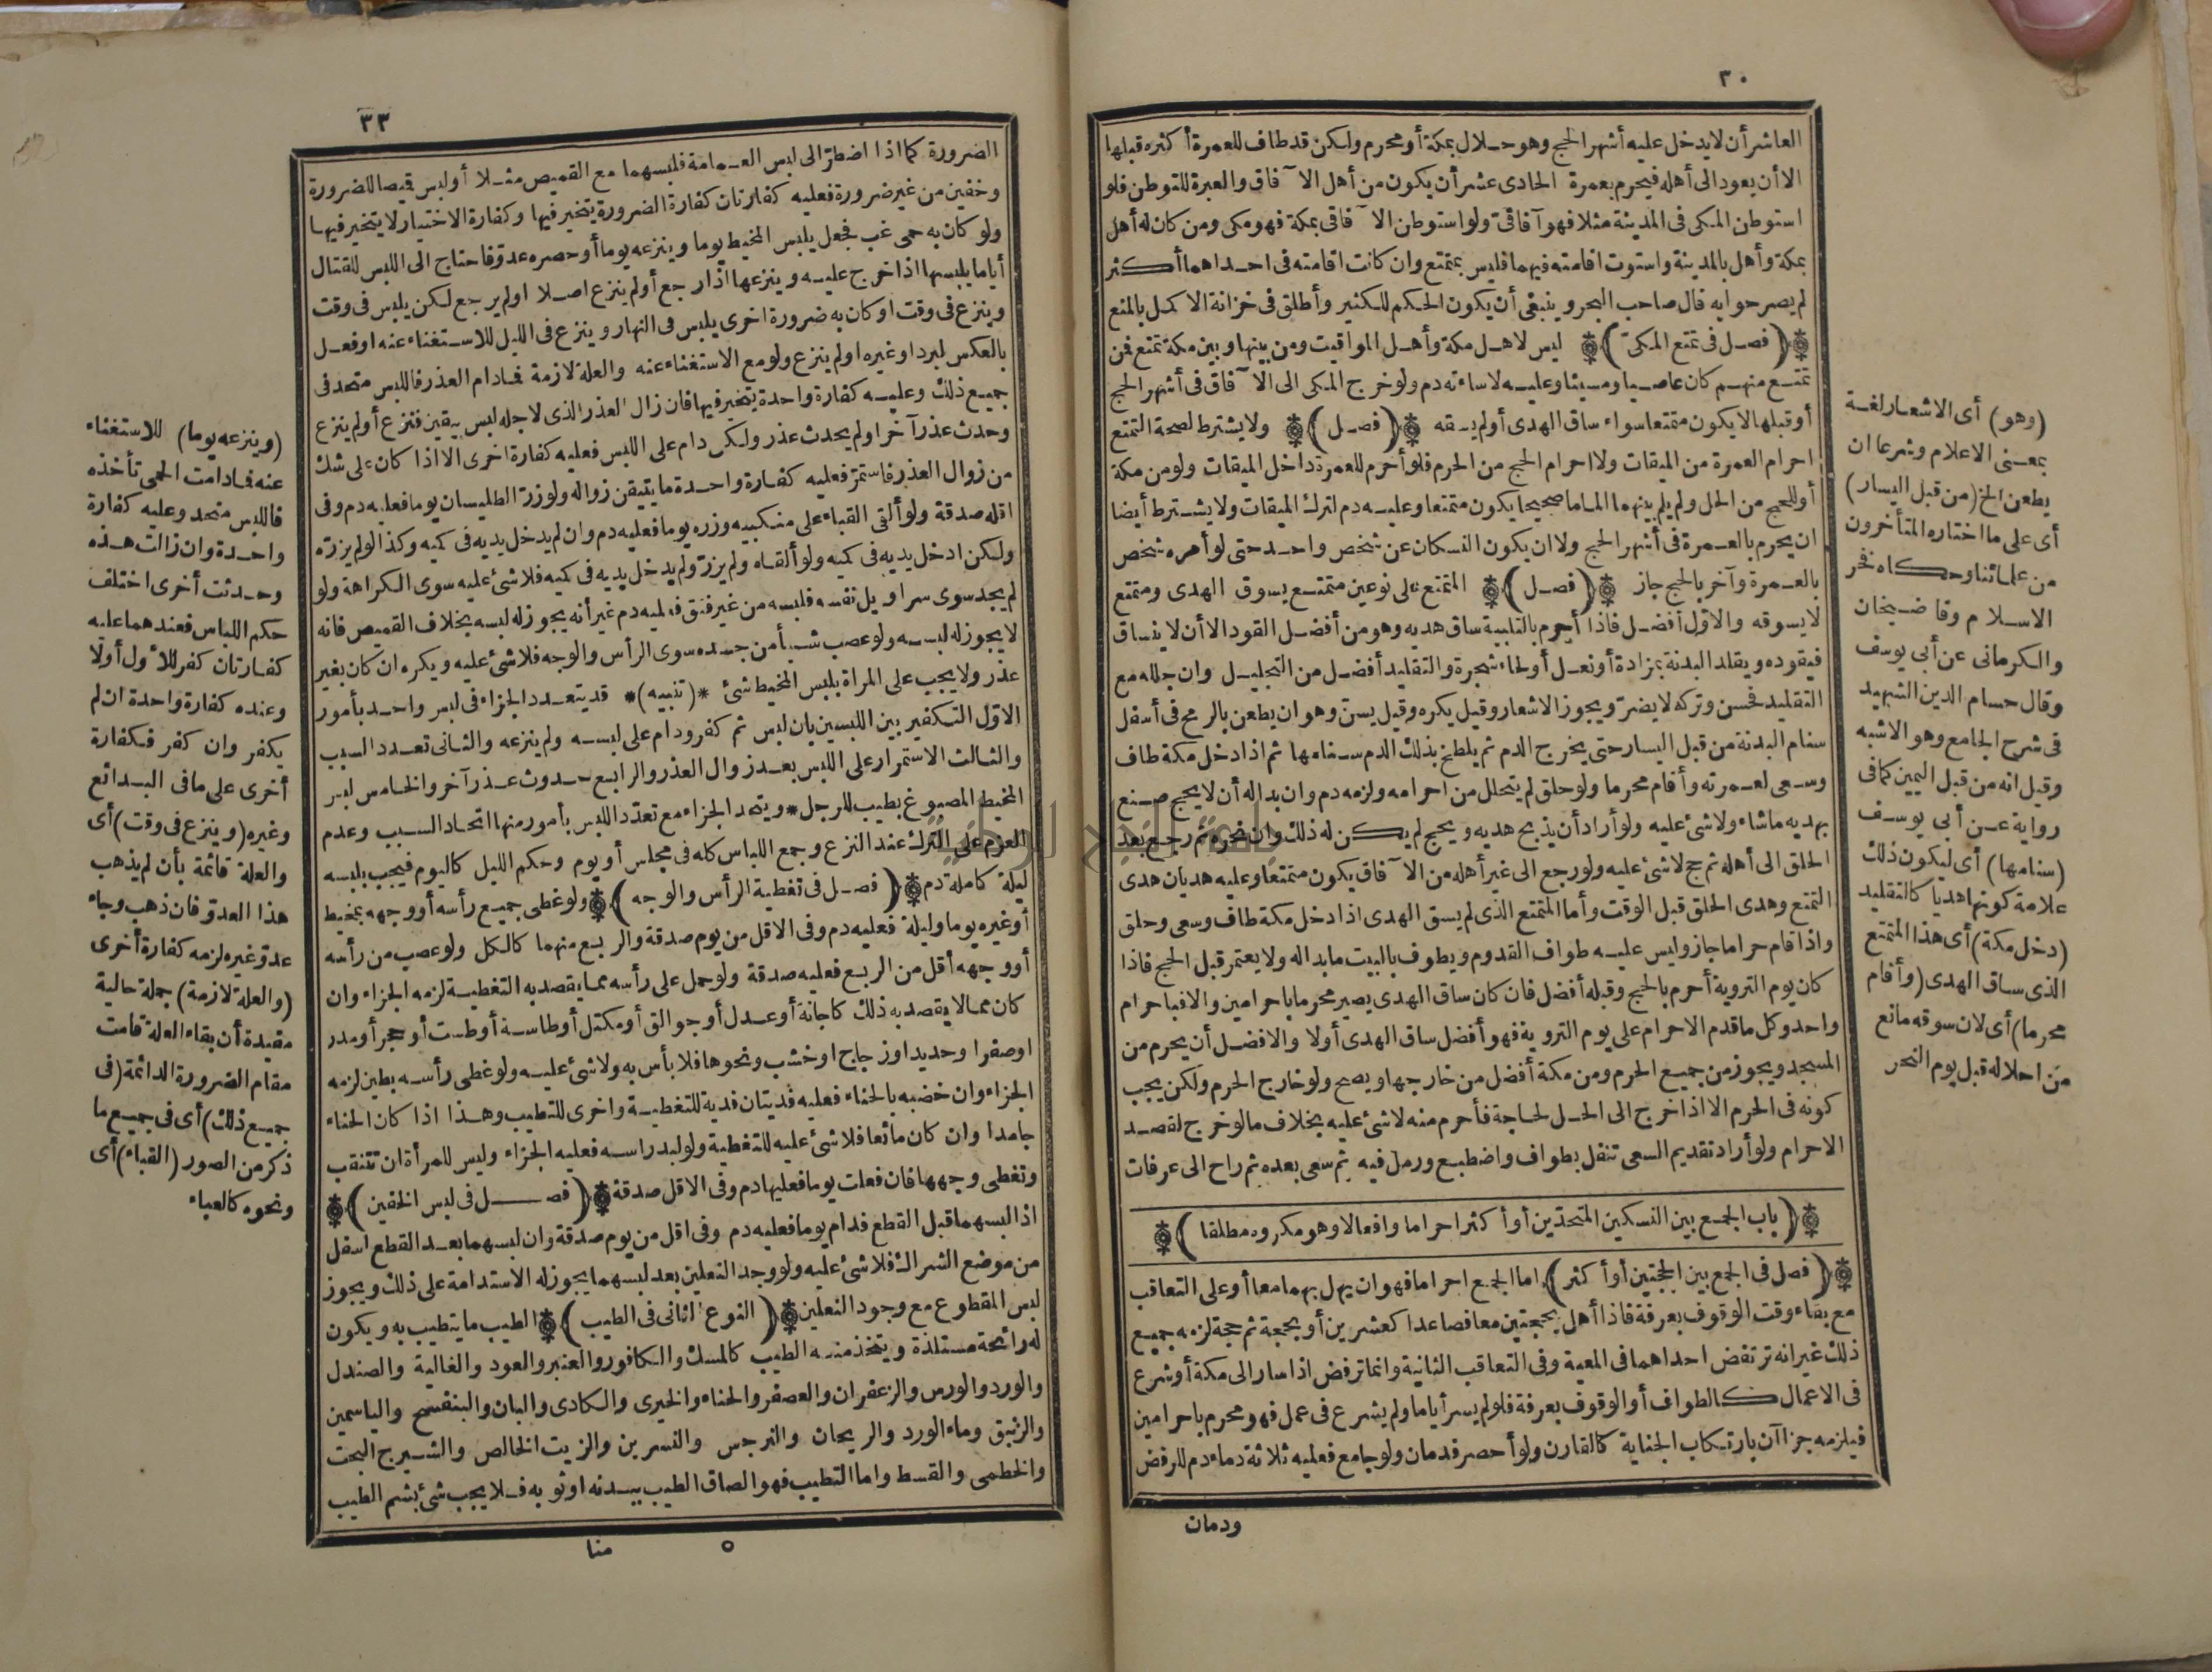 ٣٠
العاشر أن لا يدخل عليه أشهر الحج وهو حلال بمكة أو محرم ولكن قد طاف للعمرة أكثره قبلها
الا أن يعود الى أهله فيحرم بعمرة الحادى عشر أن يكون من أهل الآفاق والعبرة للتوطن فلو
استوطن المكى فى المدينة مثلا فهو آفاقىّ ولو استوطن الآفاقى بمكة فهو مكى ومن كان له أهل
بمكة وأهل بالمدينة واستوت اقامته فيهما فليس بمتمتع وان كانت اقامته فى احداهما أكثر
لم يصرحوا به قال صاحب البحر وينبغى أن يكون الحكم للكثير وأطلق فى خزانة الاكمل بالمنع
(فصل فى تمتع المكىّ) ليس لاهل مكة وأهل المواقيت ومن بينها وبين مكة تمتع فمن
تمتع منهم كان عاصيا ومسيئا وعليه لاساءته دم ولو خرج المكى الى الآفاق فى أشهر الحج
أو قبلها لا يكون متمتعا سواء ساق الهدى أو لم يسقه (فصل) ولا يشترط لصحة التمتع
احرام العمرة من الميقات ولا احرام الحج من الحرم فلو أحرم للعمرة داخل الميقات ولو من مكة
أو للحج من الحل ولم يلم بينهما الماما صحيحا يكون متمتعا وعليه دم لترك الميقات ولا يشترط أيضا
ان يحرم بالعمرة فى أشهر الحج ولا ان يكون النسكان عن شخص واحد حتى لو أمره شخص
بالعمرة وآخر بالحج جاز (فصل) المتمتع على نوعين متمتع يسوق الهدى ومتمتع
لا يسوقه والاوّل أفضل فاذا أحرم بالتلبية ساق هديه وهو من أفضل القود الا أن لا ينساق
فيقوده ويقلد البدنة بمزادة أو نعل أو لحاء شجرة والتقليد أفضل من التجليل وان جلله مع
التقليد فحسن وتركه لا يضرّ ويجوز الاشعار وقيل يكره وقيل يسنّ وهو ان يطعن بالرمح فى أسفل
سنام البدنة من قبل اليسار حتى يخرج الدم ثم يلطخ بذلك الدم سنامها ثم اذا دخل مكة طاف
وسعى لعمرته وأقام محرما ولو حلق لم يتحلل من احرامه ولزمه دم وان بدا له أن لا يحج صنع
بهديه ما شاء ولا شئ عليه ولو أراد أن يذبح هديه ويحج لم يكن له ذلك وان نحره ثم رجع بعد
الحلق الى أهله ثم حج لا شئ عليه ولو رجع الى غير أهله من الآفاق يكون متمتعا وعليه هديان هدى
التمتع وهدى الحلق قبل الوقت وأما المتمتع الذى لم يسق الهدى اذا دخل مكة طاف وسعى وحلق
واذا قام حراما جاز وليس عليه طواف القدوم ويطوف بالبيت ما بدا له ولا يعتمر قبل الحج فاذا
كان يوم التروية أحرم بالحج وقبله أفضل فان كان ساق الهدى يصير محرما باحرامين والا فباحرام
واحد وكل ما قدم الاحرام على يوم التروية فهو أفضل ساق الهدى أولا والافضل أن يحرم من
المسجد ويجوز من جميع الحرم ومن مكة أفضل من خارجها ويصح ولو خارج الحرم ولكن يجب
كونه فى الحرم الا اذا خرج الى الحل لحاجة فأحرم منه لا شئ عليه بخلاف ما لو خرج لقصد
الاحرام ولو أراد تقديم السعى تنفل بطواف واضطبع ورمل فيه ثم سعى بعده ثم راح الى عرفات
(باب الجمع بين النسكين المتحدّين أو أكثر احراما وافعالا وهو مكروه مطلقا)
(فصل فى الجمع بين الحجتين أو أكثر) اما الجمع احراما فهو ان يهل بهما معا أو على التعاقب
مع بقاء وقت الوقوف بعرفة فاذا أهل بحجتين معا فصاعدا كعشرين أو بحجة ثم حجة لزمه جميع
ذلك غير انه ترتفض احداهما فى المعية وفى التعاقب الثانية وانما ترفض اذا سار الى مكة أو شرع
فى الاعمال كالطواف أو الوقوف بعرفة فلو لم يسر أياما ولم يشرع فى عمل فهو محرم باحرامين
فيلزمه جزاآن بارتكاب الجناية كالقارن ولو أحصر فدمان ولو جامع فعليه ثلاثة دماء دم للرفض
ودمان
(وهو) أى الاشعار لغة
بمعنى الاعلام وشرعا ان
يطعن الخ (من قبل اليسار)
أى على ما اختاره المتأخرون
من علمائنا وحكاه فخر
الاسلام وقاضيخان
والكرمانى عن أبى يوسف
وقال حسام الدين الشهيد
فى شرح الجامع وهو الاشبه
وقيل انه من قبل اليمين كما فى
رواية عن أبى يوسف
(سنامها) أى ليكون ذلك
علامة كونها هديا كالتقليد
(دخل مكة) أى هذا المتمتع
الذى ساق الهدى (وأقام
محرما) أى لان سوقه مانع
من احلاله قبل يوم النحر
٣٣
الضرورة كما اذا اضطرّ الى لبس العمامة فلبسهما مع القميص مثلا أو لبس قميصا للضرورة
وخفين من غير ضرورة فعليه كفارتان كفارة الضرورة يتخير فيها وكفارة الاختيار لا يتخير فيها
ولو كان به حمى غب فجعل يلبس المخيط يوما وينزعه يوما أو حصره عدوّ فاحتاج الى اللبس للقتال
أياما يلبسها اذا خرج عليه وينزعها اذا رجع أو لم ينزع اصلا او لم يرجع لكن يلبس فى وقت
وينزع فى وقت او كان به ضرورة اخرى يلبس فى النهار وينزع فى الليل للاستغناء عنه او فعل
بالعكس لبرد او غيره او لم ينزع ولو مع الاستغناء عنه والعلة لازمة فمادام العذر فاللبس متحد فى
جميع ذلك وعليه كفارة واحدة يتخير فيها فان زال العذر الذى لاجله لبس بيقين فنزع أو لم ينزع
وحدث عذر آخر او لم يحدث عذر ولكن دام على اللبس فعليه كفارة اخرى الا اذا كان على شك
من زوال العذر فاستمرّ فعليه كفارة واحدة ما يتيقن زواله ولو زرّ الطليسان يوما فعليه دم وفى
اقله صدقة ولو ألقى القباء على منكبيه وزره يوما فعليه دم وان لم يدخل يديه فى كميه وكذا لو لم يزره
ولكن ادخل يديه فى كميه ولو ألقاه ولم يزرّ ولم يدخل يديه فى كميه فلا شئ عليه سوى الكراهة ولو
لم يجد سوى سراويل نفسه فلبسه من غير فتق فعليه دم غير أنه يجوز له لبسه بخلاف القميص فانه
لا يجوز له لبسه ولو عصب شيأ من جسده سوى الرأس والوجه فلا شئ عليه ويكره ان كان بغير
عذر ولا يجب على المرأة بلبس المخيط شئ *(تنبيه)* قد يتعدد الجزاء فى لبس واحد بأمور
الاوّل التكفير بين اللبسين بان لبس ثم كفر ودام على لبسه ولم ينزعه والثانى تعدد السبب
والثالث الاستمرار على اللبس بعد زوال العذر والرابع حدوث عذر آخر والخامس لبس
المخيط المصبوغ بطيب للرجل * ويتحد الجزاء مع تعدّد اللبس بأمور منها اتحاد السبب وعدم
العزم على الترك عند النزع وجمع اللباس كله فى مجلس أو يوم وحكم الليل كاليوم فيجب بلبسه
ليلة كاملة دم (فصل فى تغطية الرأس والوجه) ولو غطى جميع رأسه أو وجهه بمخيط
أو غيره يوما وليلة فعليه دم وفى الاقل من يوم صدقة والربع منهما كالكل ولو عصب من رأسه
أو وجهه أقل من الربع فعليه صدقة ولو حمل على رأسه مما يقصد به التغطية لزمه الجزاء وان
كان مما لا يقصد به ذلك كاجانة أو عدل أو جوالق أو مكتل أو طاسة أو طست أو حجر أو مدر
او صفر او حديد او زجاج او خشب ونحوها فلا بأس به ولا شئ عليه ولو غطى رأسه بطين لزمه
الجزاء وان خضبه بالحناء فعليه فديتان فدية للتغطية واخرى للتطيب وهذا اذا كان الحناء
جامدا وان كان مائعا فلا شئ عليه للتغطية ولو لبد راسه فعليه الجزاء وليس للمرأة ان تتنقب
وتغطى وجهها فان فعلت يوما فعليها دم وفى الاقل صدقة (فصل فى لبس الخفين)
اذا لبسهما قبل القطع فدام يوما فعليه دم وفى اقل من يوم صدقة وان لبسهما بعد القطع اسفل
من موضع الشراك فلا شئ عليه ولو وجد النعلين بعد لبسهما يجوز له الاستدامة على ذلك ويجوز
لبس المقطوع مع وجود النعلين (النوع الثانى فى الطيب) الطيب ما يتطيب به ويكون
له رائحة مستلذة ويتخذ منه الطيب كالمسك والكافور والعنبر والعود والغالية والصندل
والورد والورس والزعفران والعصفر والحناء والخيرى والكادى والبان والبنفسج والياسمين
والزنبق وماء الورد والريحان والنرجس والنسرين والزيت الخالص والشيرج البحت
والخطمى والقسط واما التطيب فهو الصاق الطيب ببدنه او ثوبه فلا يجب شئ بشم الطيب
٥ منا
(وينزعه يوما) للاستغناء
عنه فمادامت الحمى تأخذه
فاللبس متحد وعليه كفارة
واحدة وان زالت هذه
وحدثت أخرى اختلف
حكم اللباس فعندهما عليه
كفارتان كفر للاول أو لا
وعنده كفارة واحدة ان لم
يكفر وان كفر فكفارة
أخرى على ما فى البدائع
وغيره (وينزع فى وقت) أى
والعلة قائمة بأن لم يذهب
هذا العدوّ فان ذهب وجاء
عدوّ غيره لزمه كفارة أخرى
(والعلة لازمة) جملة حالية
مقيدة أن بقاء العلة قامت
مقام الضرورة الدائمة (فى
جميع ذلك) أى فى جميع ما
ذكر من الصور (القباء) أى
ونحوه كالعباء